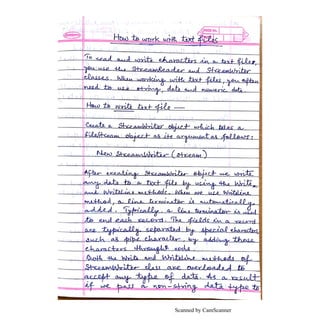 How to work with text files
To read and write characters in a text files,
you use the StreamReader and StreamWriter
classes. When working with text files, you often
need to use string, date and numeric data.
How to write text file —
Create a StreamWriter object which takes a
FileStream object as its argument as follows:
New StreamWriter (stream)
After creating StreamWriter object we write
any data to a text file by using the Write
and WriteLine methods. When we use WriteLine
method, a line terminator is automatically
added. Typically, a line terminator is used
to end each record. The fields in a record
are typically separated by special characters,
such as pipe character, by adding those
characters through code.
Both the Write and WriteLine methods of
StreamWriter class are overloaded to
accept any type of data. As a result
if we pass a non-string data type to
Scanned by CamScanner